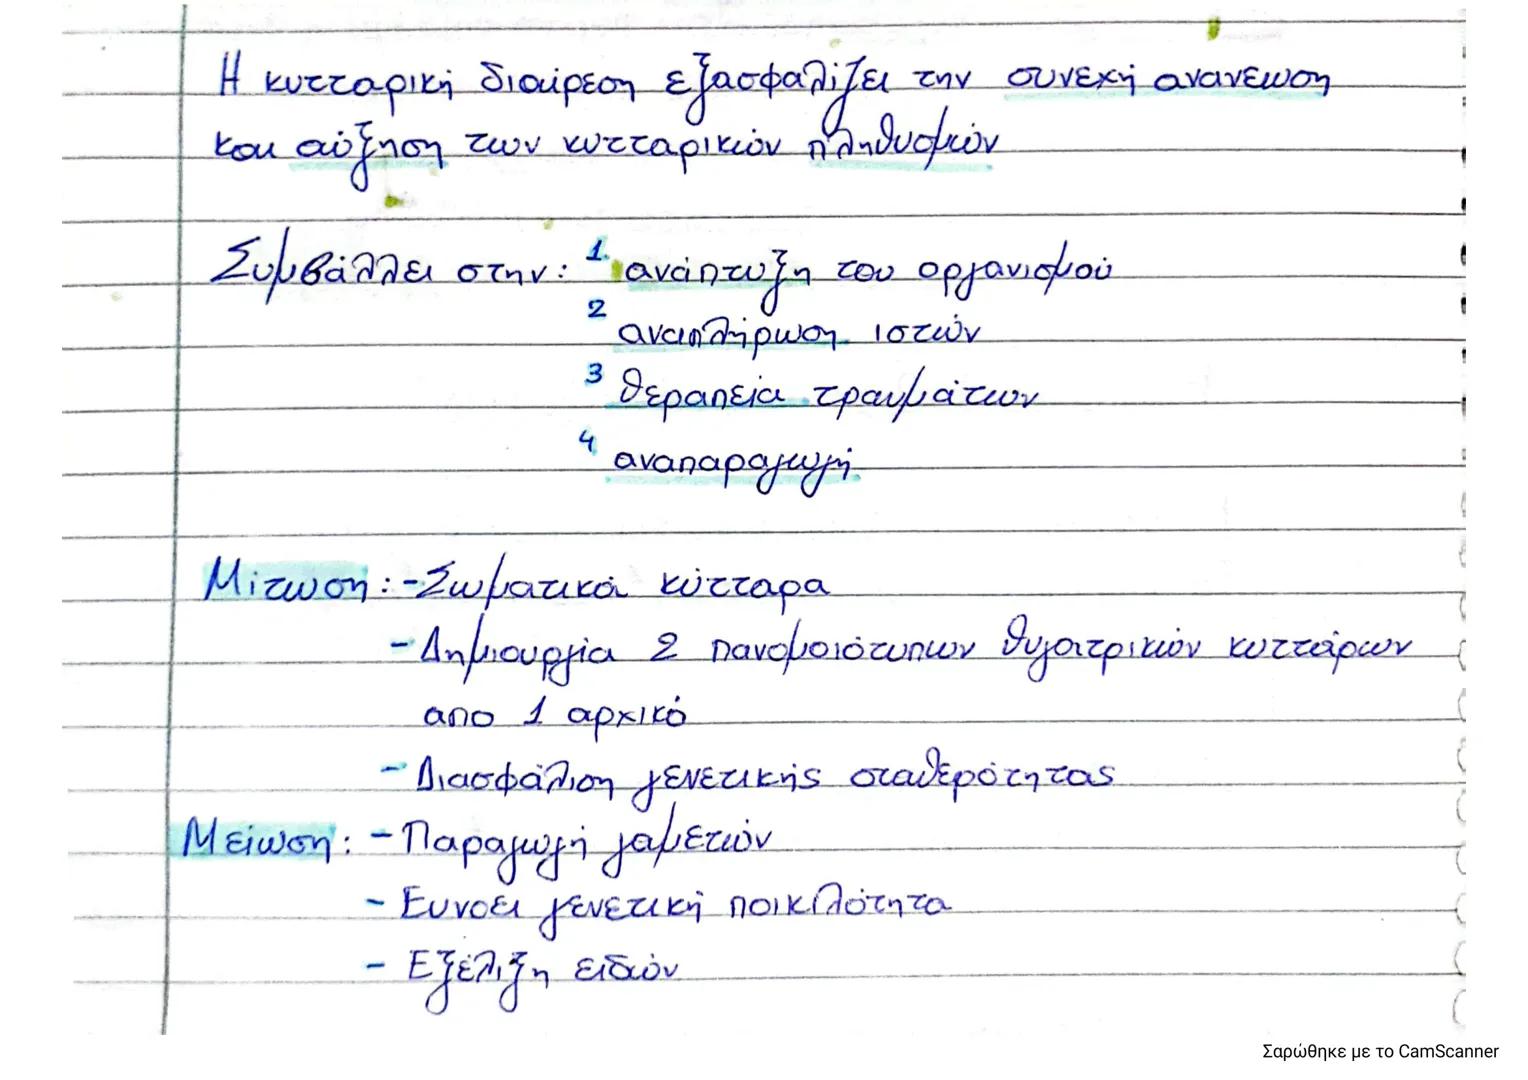 Η κυτταρική διαίρεση εξασφαλίζει την συνεχή ανανέωση
και αύξηση των κυτταρικών πληθυσμών
Συμβάλλει στην: 1. ανάπτυξη του οργανισμού
2 αναπλήρωση ιστών
3 θεραπεία τραυμάτων
4 αναπαραγωγή
Μίτωση: - Σωματικά κύτταρα
- Δημιουργία 2 πανομοιότυπων θυγατρικών κυττάρων
απο 1 αρχικό
- Διασφάλιση γενετικής σταθερότητας
Μείωση: - Παραγωγή γαμετών
- Ευνοεί γενετική ποικιλότητα
- Εξέλιξη ειδών
Σαρώθηκε με το CamScanner